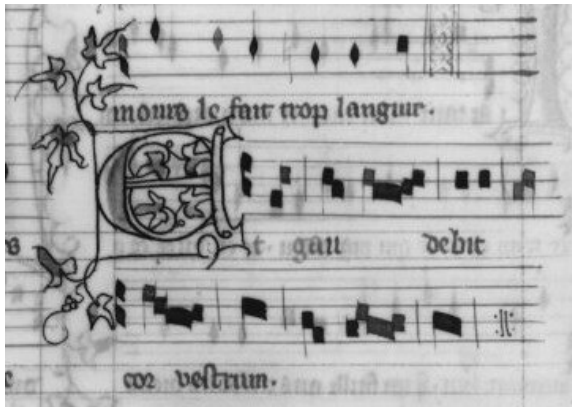 mours le fait trop languir.
Et gau debit
cor vestrum.